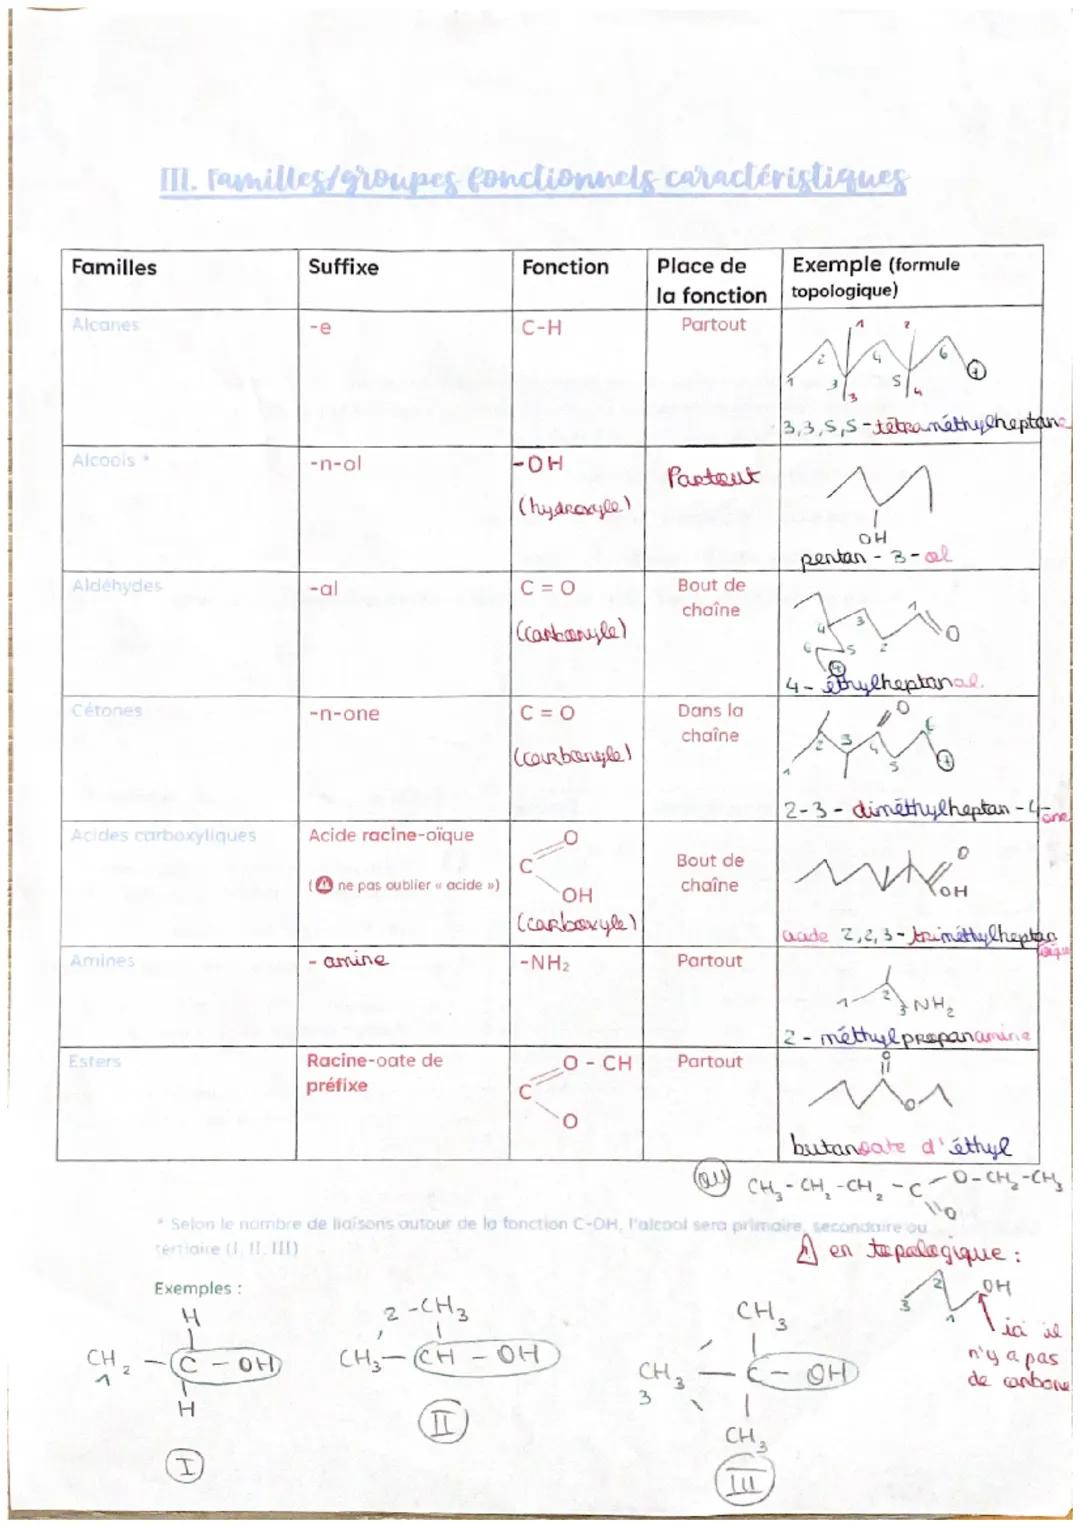 III. Familles/groupes fonctionnels caractéristiques
Familles
Suffixe
Fonction
Place de la fonction
Exemple (formule topologique)
Alcanes
-e
C-H
Partout
1 2
1 2 3 4 5 6 7
3 4
3,3,5,5-tétraméthylheptane
Alcools *
-n-ol
-OH
(hydroxyle)
Partout
OH
pentan - 3 - ol
Aldéhydes
-al
C = O
(carbonyle)
Bout de
chaîne
1 2 3 4 5 6 7
O
4- éthylheptanal.
Cétones
-n-one
C = O
(carbonyle)
Dans la
chaîne
O
1 2 3 4 5 6 7
2-3- diméthylheptan -4-one
Acides carboxyliques
Acide racine-oïque
(⚠ ne pas oublier « acide »)
O
C
OH
(carboxyle)
Bout de
chaîne
O
OH
acide 2,2,3-triméthylheptanoïque
Amines
- amine
-NH₂
Partout
1 2 3 NH₂
2 - méthylpropanamine
Esters
Racine-oate de
préfixe
O - CH
C
O
Partout
O
O
butanoate d'éthyl
ou CH₃-CH₂-CH₂-C-O-CH₂-CH₃
O
* Selon le nombre de liaisons autour de la fonction C-OH, l'alcool sera primaire, secondaire ou
tertiaire (I, II, III)
⚠ en topologique :
3 2 1 OH
ici il
n'y a pas
de carbone
Exemples :
H
CH₂ - C - OH
1
H
I
2 -CH₃
1
CH₃- CH - OH
II
CH₃
CH₃ - C - OH
3
CH₃
III